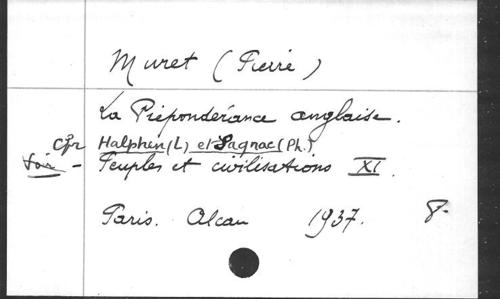 Muret (Pierre)
La Prépondérance anglaise.
Cfr Halphen (L) et Sagnac (Ph.)
Voir - Peuples et civilisations XI.
Paris. Alcan 1937. 8-